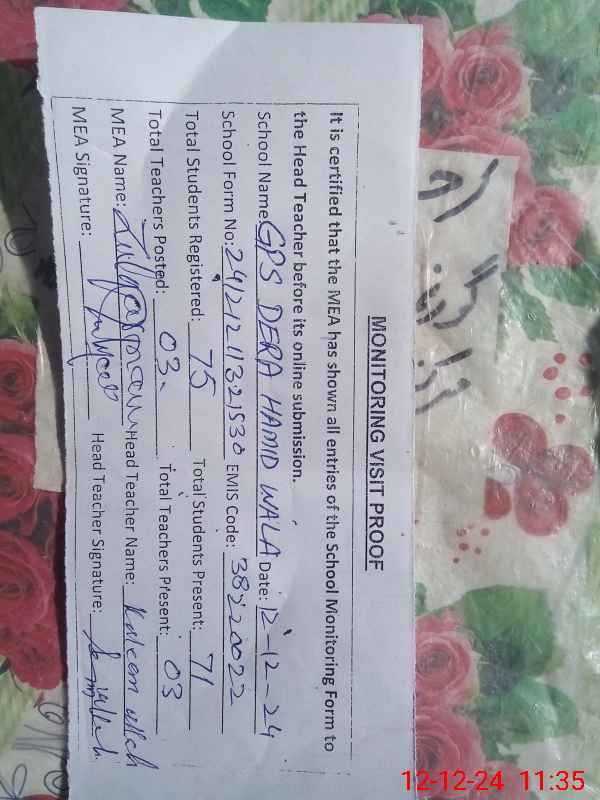 MONITORING VISIT PROOF
It is certified that the MEA has shown all entries of the School Monitoring Form to
the Head Teacher before its online submission.
School Name: GPS DERA HAMID WALA Date: 12-12-24
School Form No: EMIS Code: 38220022
Total Students Registered: 75 Total Students Present: 71
Total Teachers Posted: 03. Total Teachers Present: 03
MEA Name: Head Teacher Name: Kaleem
MEA Signature: Head Teacher Signature:
12-12-24 11:35